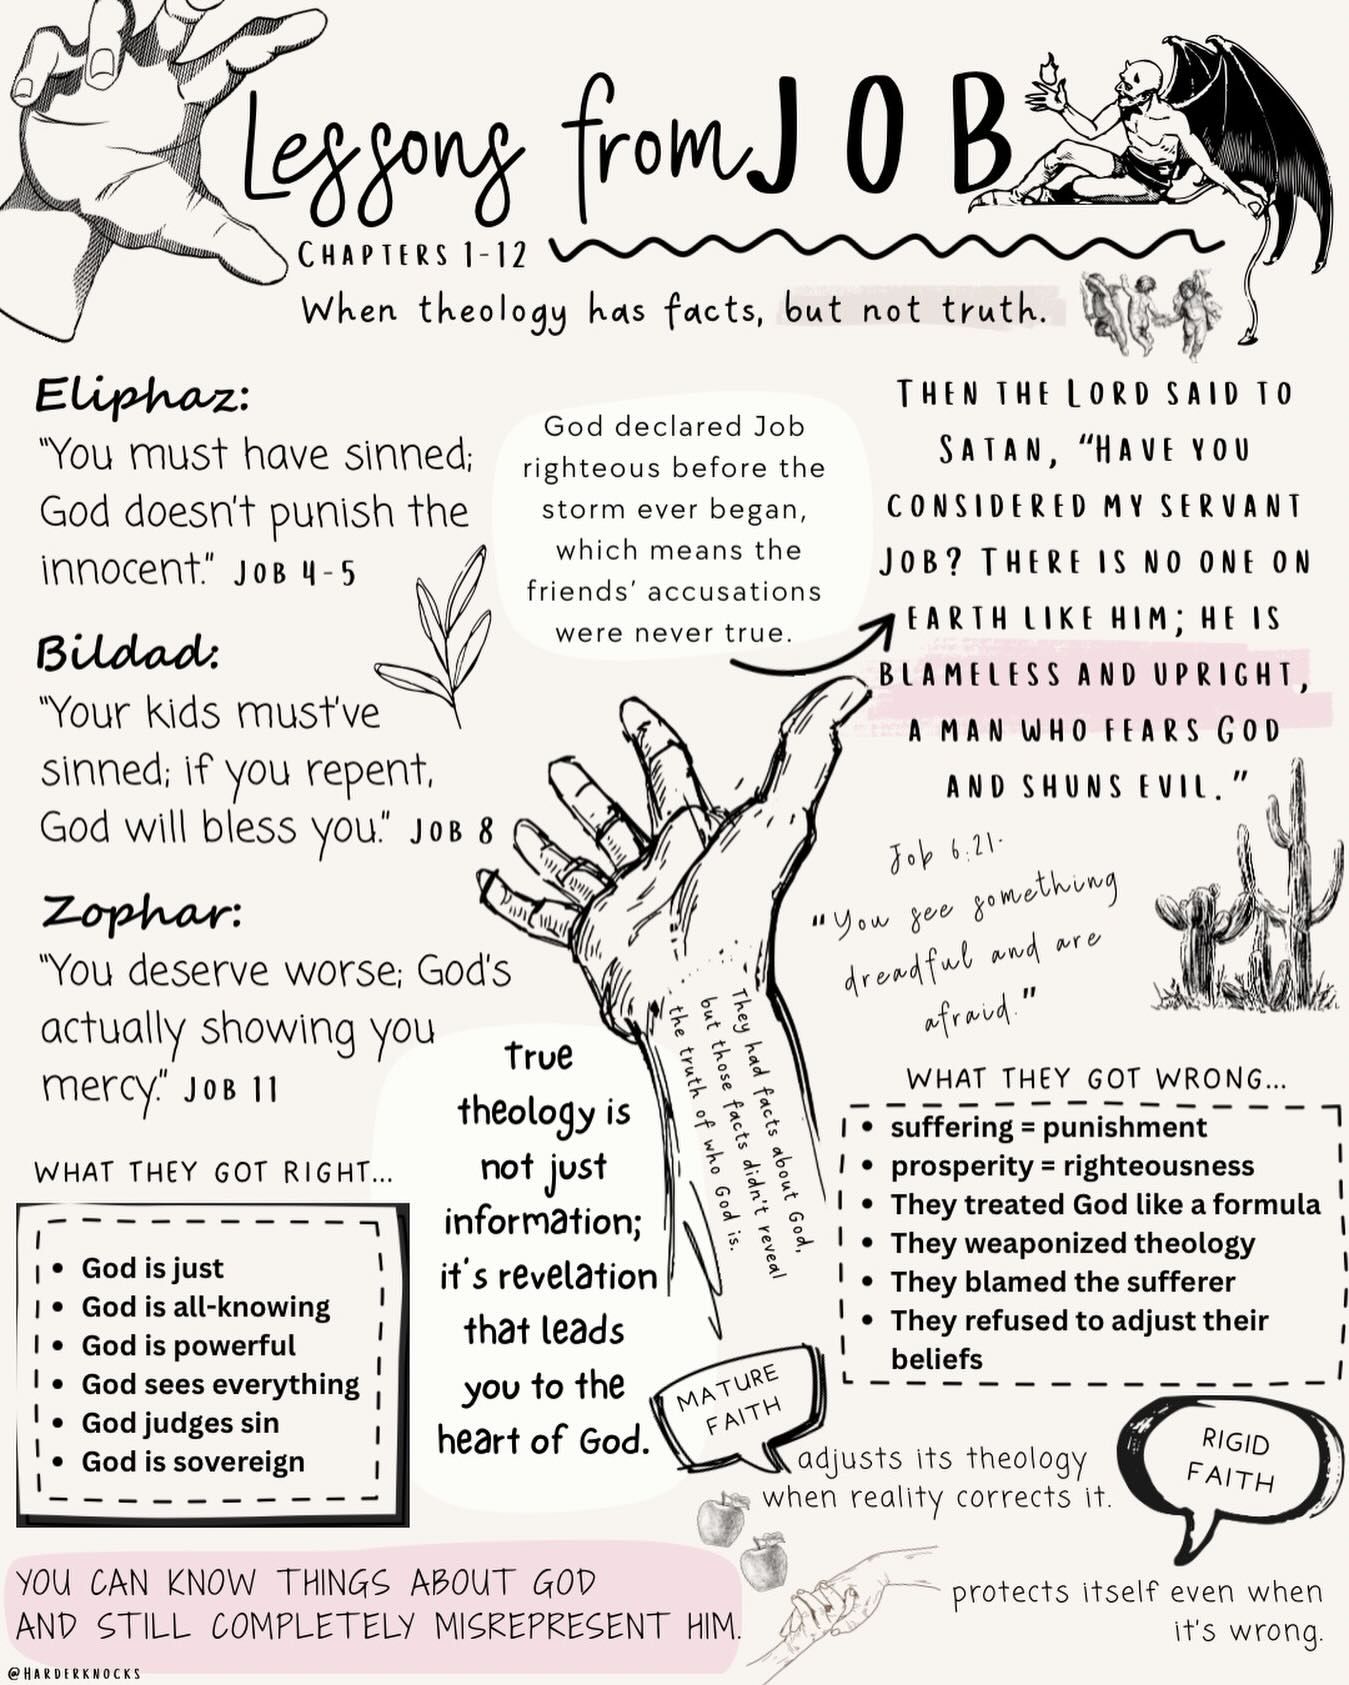 Lessons from JOB
CHAPTERS 1-12
When theology has facts, but not truth.
Eliphaz:
"You must have sinned;
God doesn't punish the
innocent." JOB 4-5
Bildad:
"Your kids must've
sinned; if you repent,
God will bless you." JOB 8
Zophar:
"You deserve worse; God's
actually showing you
mercy." JOB 11
God declared Job
righteous before the
storm ever began,
which means the
friends' accusations
were never true.
THEN THE LORD SAID TO
SATAN, "HAVE YOU
CONSIDERED MY SERVANT
JOB? THERE IS NO ONE ON
EARTH LIKE HIM; HE IS
BLAMELESS AND UPRIGHT,
A MAN WHO FEARS GOD
AND SHUNS EVIL."
Job 6:21-
"You see something
dreadful and are
afraid."
WHAT THEY GOT RIGHT...
• God is just
• God is all-knowing
• God is powerful
• God sees everything
• God judges sin
• God is sovereign
True
theology is
not just
information;
it's revelation
that leads
you to the
heart of God.
They had facts about God,
but those facts didn't reveal
the truth of who God is.
WHAT THEY GOT WRONG...
• suffering = punishment
• prosperity = righteousness
• They treated God like a formula
• They weaponized theology
• They blamed the sufferer
• They refused to adjust their
beliefs
MATURE
FAITH
adjusts its theology
when reality corrects it.
RIGID
FAITH
protects itself even when
it's wrong.
YOU CAN KNOW THINGS ABOUT GOD
AND STILL COMPLETELY MISREPRESENT HIM.
@HARDERKNOCKS